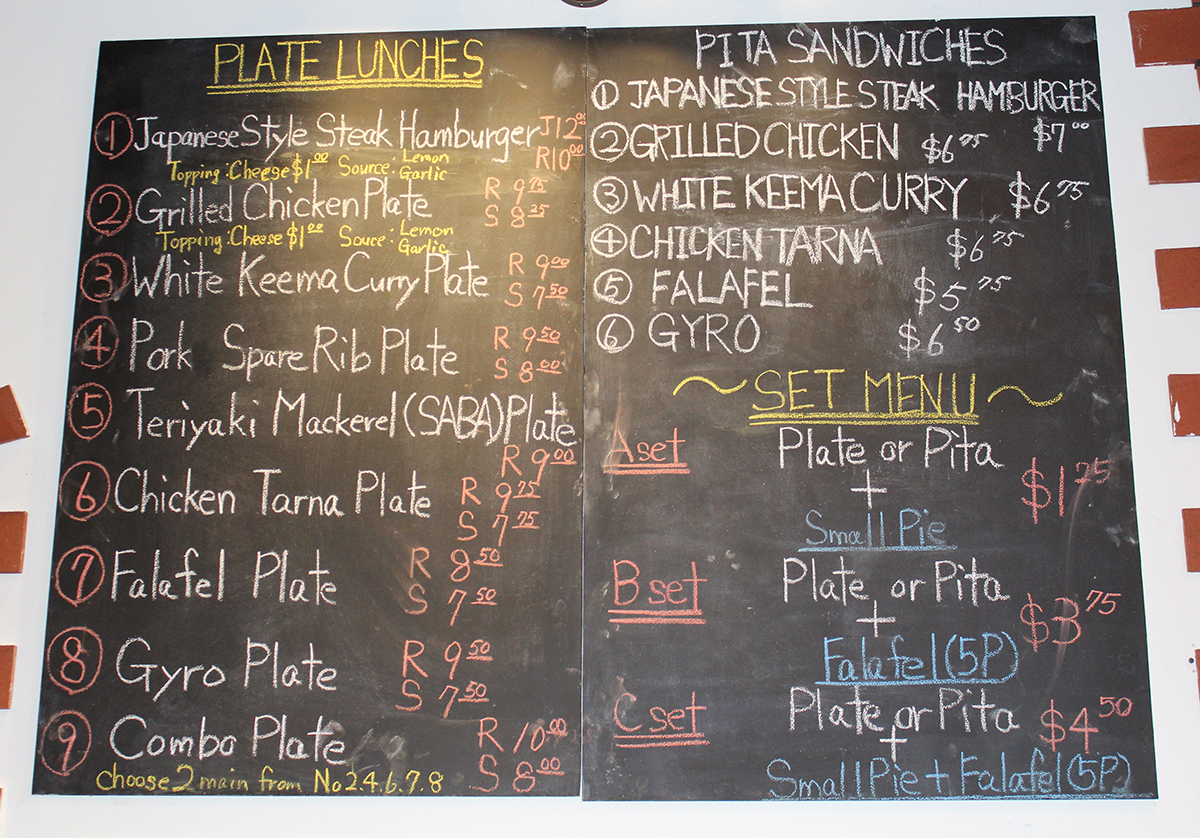 PLATE LUNCHES
① Japanese Style Steak Hamburger J12.00
R10.00
Topping:Cheese $1.00 Source: Lemon
Garlic
② Grilled Chicken Plate R 9.75
S 8.25
Topping:Cheese $1.00 Souce: Lemon
Garlic
③ White Keema Curry Plate R 9.00
S 7.50
④ Pork Spare Rib Plate R 9.50
S 8.00
⑤ Teriyaki Mackerel (SABA) Plate
R 9.00
⑥ Chicken Tarna Plate R 9.75
S 7.75
⑦ Falafel Plate R 8.50
S 7.50
⑧ Gyro Plate R 9.50
S 7.50
⑨ Combo Plate R 10.00
S 8.00
choose 2 main from No 2.4.6.7.8
PITA SANDWICHES
① JAPANESE STYLE STEAK HAMBURGER
$7.00
② GRILLED CHICKEN $6.75
③ WHITE KEEMA CURRY $6.75
④ CHICKEN TARNA $6.75
⑤ FALAFEL $5.75
⑥ GYRO $6.50
~ SET MENU ~
A set Plate or Pita
+ $1.75
Small Pie
B set Plate or Pita
+ $3.75
Falafel (5P)
C set Plate or Pita $4.50
+
Small Pie + Falafel (5P)